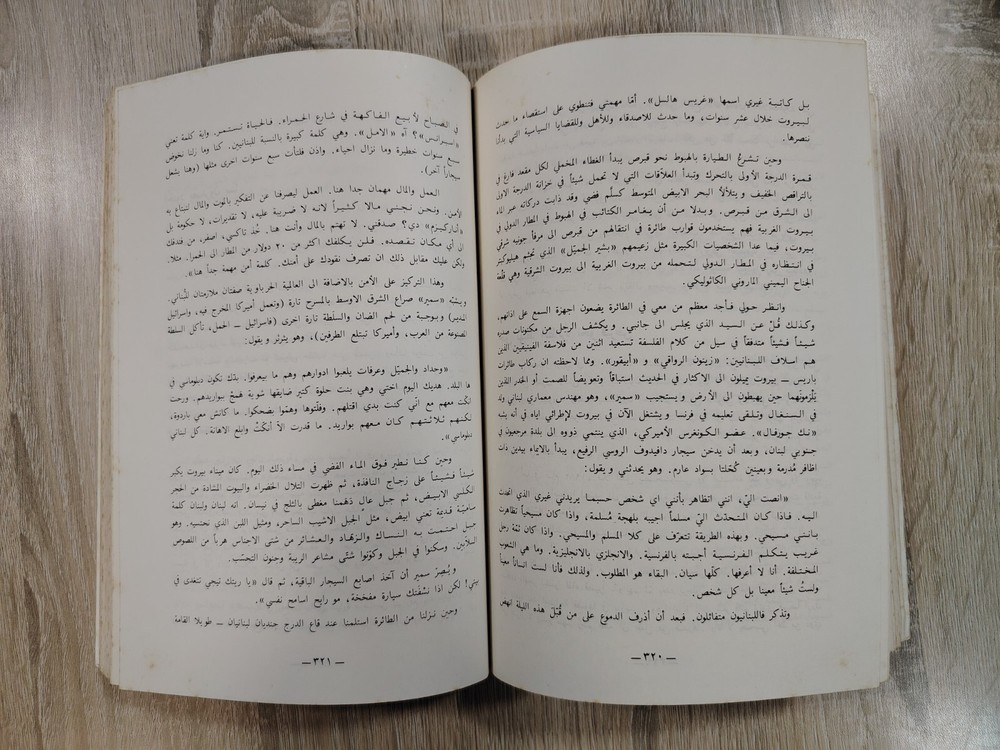 بل كاتبة غيري اسمها «غريس هالسل». أمّا مهمتي فتنطوي على استقصاء ما حدث
لبيروت خلال عشر سنوات، وما حدث للاصدقاء وللأهل وللقضايا السياسية التي بدأنا
ننصرها.
وحين تشرعُ الطيارة بالهبوط نحو قبرص يبدأ الغطاء المخملي لكل مقعد فارغ في
قمرة الدرجة الأولى بالتحرك وتبدأ العلاقات التي لا تحمل شيئاً في خزانة الدرجة الاولى
بالتراقص الخفيف ويتلألأ البحر الابيض المتوسط كسلّم فضي وقد ذابت دركاته عبر الماء
الى الشرق من قبرص. وبدلا من أن يغامر الكتائب في الهبوط في المطار الدولي في
بيروت الغربية فهم يستخدمون قوارب طائرة في انتقالهم من قبرص الى مرفأ جونيه شرقي
بيروت، فيما عدا الشخصيات الكبيرة مثل زعيمهم «بشير الجميّل» الذي تجثم هيليوكبتر
في انتظاره في المطار الدولي لتحمله من بيروت الغربية الى بيروت الشرقية وهي قلعة
الجناح اليميني الماروني الكاثوليكي.
وانظر حولي فأجد معظم من معي في الطائرة يضعون اجهزة السمع على اذانهم.
وكذلك قُل عن السيد الذي يجلس الى جانبي. ويكشف الرجل من مكنونات صدره
شيئاً فشيئاً متدفقاً في سيل من كلام الفلسفة تستعيد اثنين من فلاسفة الفينيقيين الذين
هم اسلاف اللبنانيين: «زينون الرواقي» و «أبيقور». ومما لاحظته ان ركاب طائرات
باريس ــ بيروت يميلون الى الاكثار في الحديث استباقاً وتعويضاً للصمت أو الخدر الذين
يلْزمونهما حين يهبطون الى الأرض ويستجيب «سمير»، وهو مهندس معماري لبناني ولد
في السنغال وتلقى تعليمه في فرنسا ويشتغل الآن في بيروت لإطرائي اياه في أنه يشبه
«نك جورفال». عضو الكونغرس الأميركي، الذي ينتمي ذووه الى بلدة مرجعيون في
جنوبي لبنان، وبعد أن يدخن سيجار دافيدوف الروسي الرفيع، يبدأ بالايماء بيدين ذات
اظافر مُدرمة وبعينين كُحّلتا بسواد عارم. وهو يحدثني ويقول:
«انصت اليّ، انني اتظاهر بأنني اي شخص حسبما يريدني غيري الذي اتحدث
اليه. فاذا كان المتحدّث اليّ مسلماً اجيبه بلهجة مُسلمة، واذا كان مسيحياً تظاهرت
بانني مسيحي. وبهذه الطريقة تتعرّف على كلا المسلم والمسيحي. واذا كان ثمّة رجل
غريب يتكلم الفرنسية أجبته بالفرنسية. والانجلزي بالانجليزية. وما هي الشعوب
المختلفة. أنا لا أعرفها. كلّها سيان. البقاء هو المطلوب. ولذلك فأنا لست انساناً معيناً
ولستُ شيئاً معينا بل كل شخص.
وتذكر فاللبنانيون متفائلون. فبعد أن أذرف الدموع على من قُتل هذه الليلة انهض
ــ ٣٢٠ ــ
في الصباح لأبيع الفاكهة في شارع الحمراء. فالحياة تستمر. واية كلمة تعني
آه «الامل». وهي كلمة كبيرة بالنسبة للبنانيين. كنا وما زلنا نخوض
سبع سنوات خطيرة وما نزال احياء. واذن فلتأت سبع سنوات اخرى مثلها (وهنا يشعل
سيجاراً آخر).
العمل والمال مهمان جدا هنا. العمل ليصرفنا عن التفكير بالموت والمال لنبتاع به
الأمن. ونحن نجني مالا كثيراً لانه لا ضريبة عليه، لا تقديرات، لا حكومة بل
دي؟ صدقني. لا تهتم بالمال وأنت هنا. خُذ تاكسي، اصفر، من فندقك
الى أي مكان تقصده. فلن يكلفك اكثر من ٢٠ دولار من المطار الى الحمرا. مثلا.
ولكن عليك مقابل ذلك ان تصرف نقودك على أمنك. كلمة أمن مهمة جداً هنا».
وهذا التركيز على الأمن بالاضافة الى العالمية الحرباوية صفتان ملازمتان للّبناني.
ويشبّه «سمير» صراع الشرق الاوسط بالمسرح تارة (وتعمل أميركا المخرج فيه، واسرائيل
المدير) وبوجبة من لحم الضان والسلَطة تارة اخرى (فاسرائيل ــ الحمل، تأكل السلطة
المصنوعة من العرب، وأميركا تبتلع الطرفين)، وهو يثرثر و يقول:
«وحداد والجميّل وعرفات يلعبوا ادوارهم وهم ما بيعرفوا. بدّك تكون دبلوماسي في
ها البلد. هديك اليوم اختي وهي بنت حلوة كتير ضايقها شوية بواريدهم. ورحت
نكّت معهم مع انّي كنت بدي اقتلهم. وفلّتوها وهمّوا بضحكوا. ما كانش معي باردوة،
لكنهم ثلاثتهم كان معهم بواريد. ما قدرت الاّ أنكّتْ وابلع الاهانة. كل لبناني
دبلوماسي».
وحين كنا نطير فوق الماء الفضي في مساء ذلك اليوم. كان ميناء بيروت يكبر
شيئاً فشيئاً على زجاج النافذة، ثم ظهرت التلال الخضراء والبيوت المشادة من الحجر
الكلسي الابيض، ثم جبل عالٍ دَهَمنا مغطى بالثلج في نيسان. انه لبنان ولبنان كلمة
ساميّة قديمة تعني ابيض، مثل الجبل الاشيب الساحر، ومثيل اللبن الذي نحتسيه. وهو
جبل احتمت به النساك والزهاد والعشائر من شتى الاجناس هرباً من اللصوص
السلاّبين. وسكنوا في الجبل وكوّنوا شتّى مشاعر الريبة وجنون التحسّب.
ويُصِرّ سمير أن آخذ اصابع السيجار الباقية، ثم قال «يا ريتك تيجي نتغدى في
بيتي! لكن اذا نسْفَتك سيارة مفخخة، مو رايح اسامح نفسي».
وحين نزلنا من الطائرة استلمنا عند قاع الدرج جنديان لبنانيان ــ طويلا القامة
ــ ٣٢١ ــ